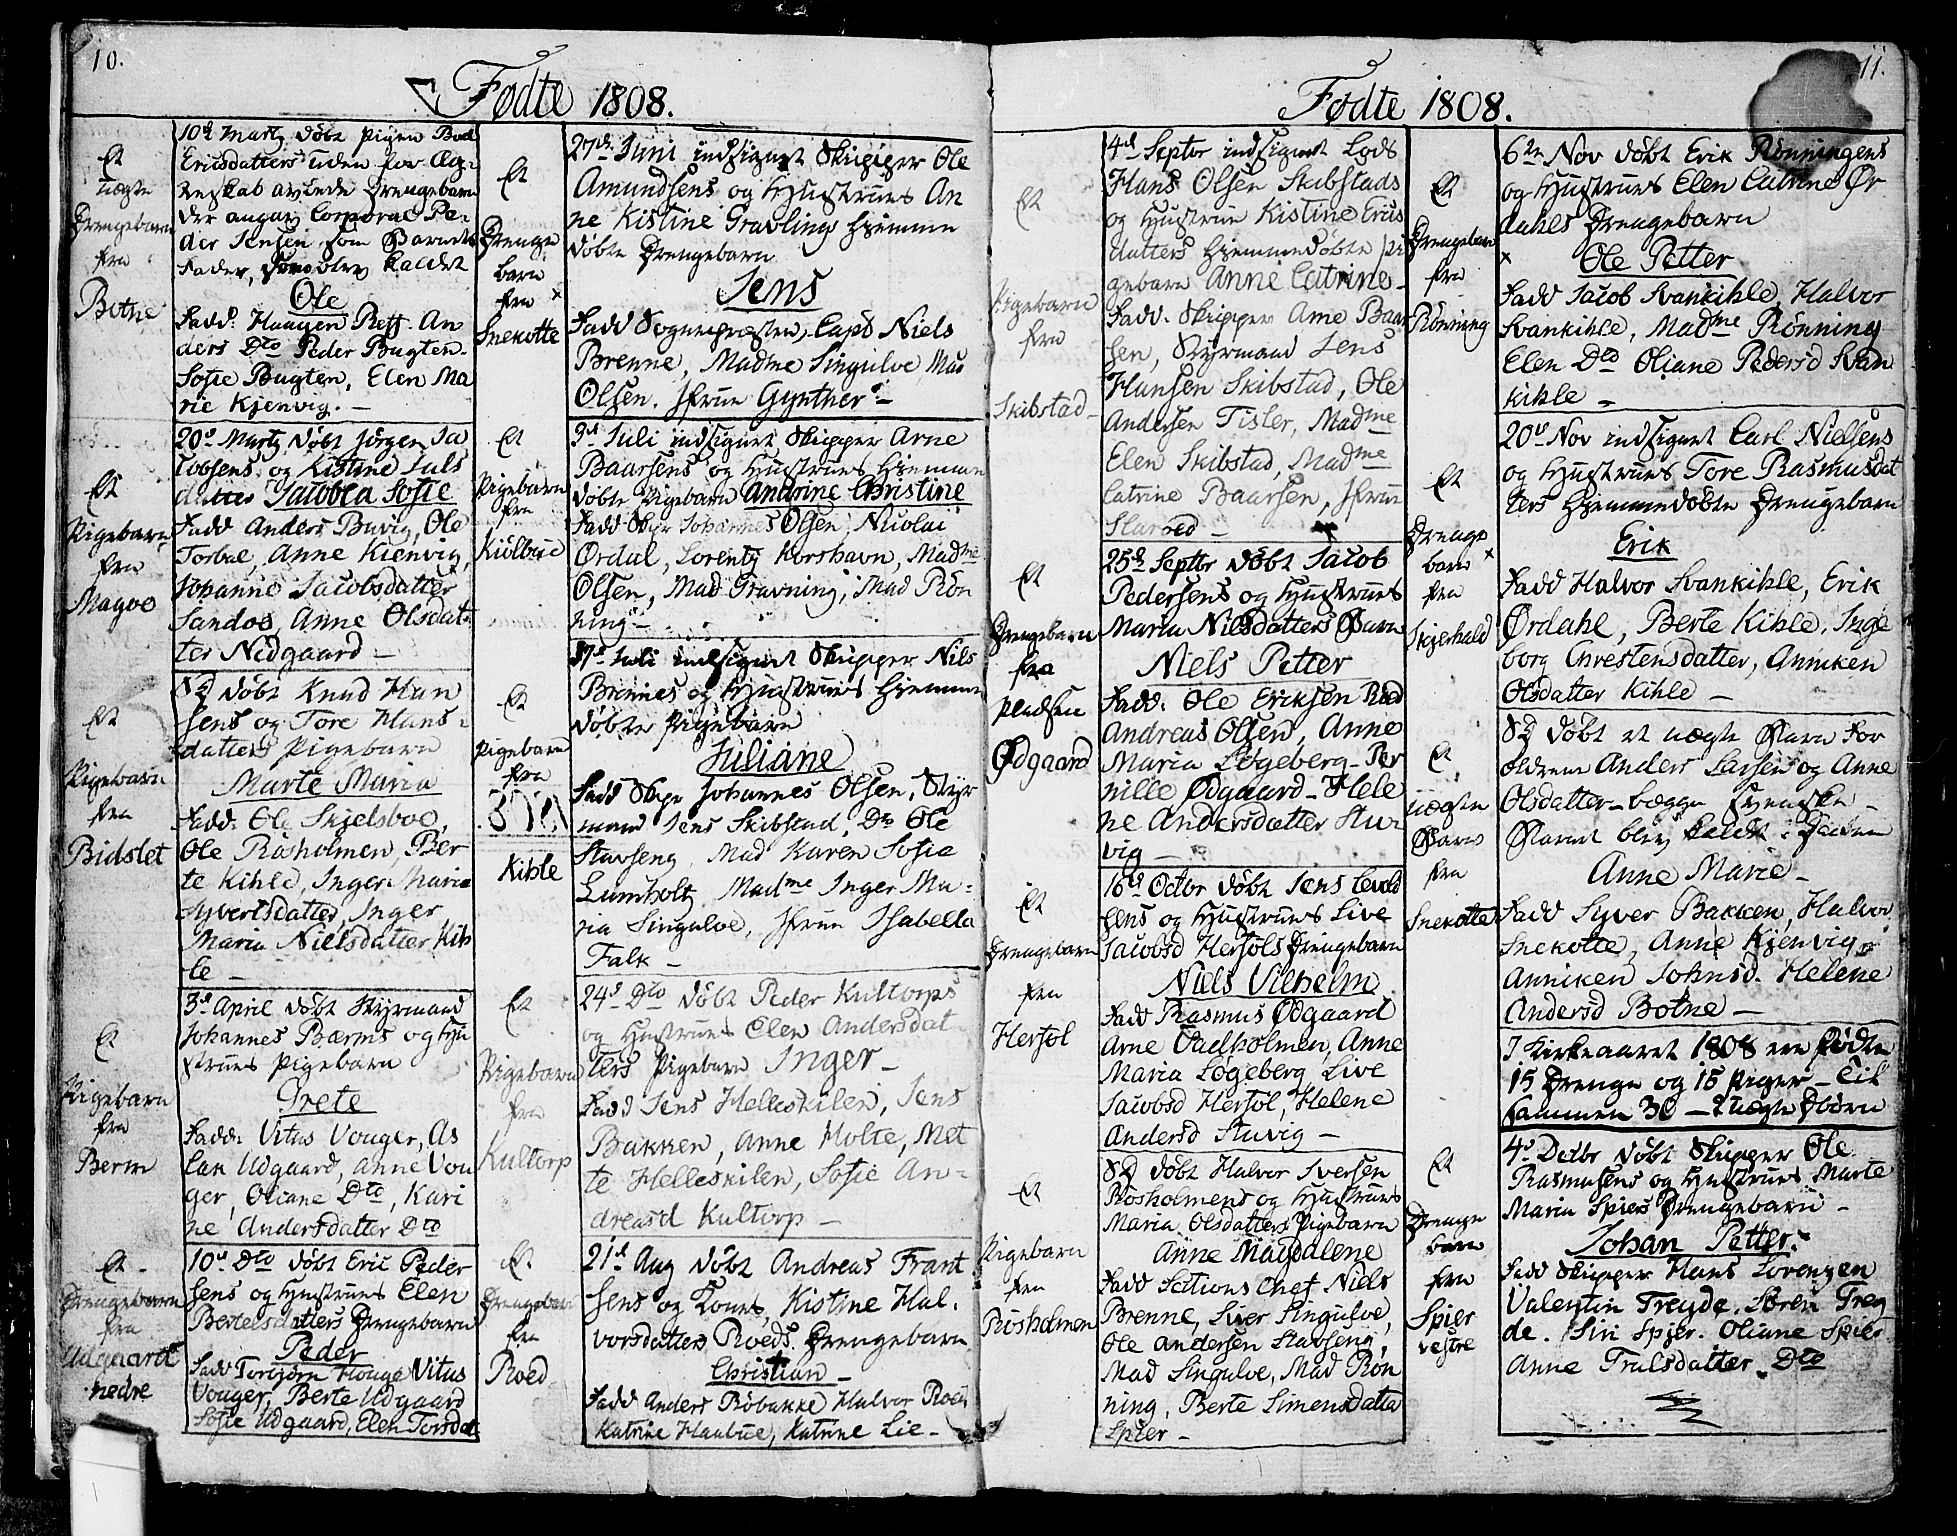 10.
Fødte 1808.
Et
uægte
Drengebarn
fra
Botne
10d Marty døbt Pigen Bod
Ericsdatters uden for Æg-
teskab avlede Drengebarn
der angav Corporal Pe-
der Jensen som Barnets
Fader, blev kaldet
Ole
Fadd: Haagen Reff. An
ders Dto Peder Bugten
Sofie Bugten, Elen Ma
rie Kjenvig. —
Et
Pigebarn
fra
Magøe
20d Marty døbt Jørgen Ja
cobsens og Kistine Juls
datters Jacobea Sofie
Fadd Anders Buvig, Ole
Torbal, Anne Kienvig,
Johanne Jacobsdatter
Sandøe, Anne Olsdat-
ter Nedgaard —
Et
Pigebarn
fra
Bidslet
døbt Knud Han
sens og Tore Hans-
datters Pigebarn
Marte Maria
Fadd: Ole Skjelsboe,
Ole Rosholmen, Ber
te Kihle, Inger Maria
Syvertsdatter, Inger
Maria Nielsdatter Kih
le —
Et
Pigebarn
fra
Berm
3d April døbt Styrmand
Johannes Bærms og Hu
strues Pigebarn
Grete
Fadd: Vitus Vouger, As
lak Udgaard, Anne Vou
ger, Oliane Dto, Kari
ne Andersdatter Dto
Et
Drengebarn
fra
Udgaard
nedre
10d Dto døbt Eric Peder
sens og Hustrues Elen
Bertelsdatters Drengebarn
Peder
Fadd Torbjørn Houge Vitus
Vouger, Berte Udgaard
Sofie Udgaard, Elen Torsdat
Et
Drenge
barn
fra
Snekotte
27de Juni indsignet Skipper Ole
Amundsens og Hustrues An
ne Kistine Gravling Hjemme
døbte Drengebarn
Jens
Fadd Sognepresten, Capt Niels
Brenne, Madme Singulve Mad
Olsen. Jfrue Gynther —
Et
Pigebarn
fra
Kiølbue
3d Juli indsignet Skipper Arne
Baarsens og Hustrues Hjemme
døbte Pigebarn Andrine Christine
Fadd Skpr Johannes Olsen, Nicolai
Ørdal, Lorentz Korshavn, Madme
Olsen, Mad Gravning, Mad Røn
ning —
Et
Pigebarn
fra
Kihle
Juli indsignet Skipper Nils
Brennes og Hustrues Hjemme
døbte Pigebarn
Juliane
Fadd Skpr Johannes Olsen, Styr
mand Jens Skibstad, Do Ole
Stavseng, Mad Karen Sofie
Lumholtz, Madme Inger Ma-
ria Singulve, Jfrue Isabella
Falk —
Et
Pigebarn
fra
Kultorp
24d Dto døbt Peder Kultorps
og Hustrues Elen Andersdat-
ters Pigebarn Inger —
Fadd Jens Helleskilen, Jens
Bakken, Anne Holte, Met
te Helleskilen, Sofie An-
dreasd Kultorp —
Et
Drengebarn
fra
Røed
21d Aug døbt Andreas Frant
sens og Kones, Kistine Hal-
vorsdatters Røeds Drengebarn
Christian —
Fadd Anders Røbakke Halvor Røed
Katrine Haabue, Katrine Lie —
11.
Fødte 1808.
Et
Pigebarn
fra
Skibstad —
4d Septbr indsignet Lods
Hans Olsen Skibstads
og Hustrue Kistine Erics
datters Hjemmedøbte Pi
gebarn Anne Catrine —
Fadd. Skipper Arne Baar
sen, Styrmand Jens
Hansen Skibstad, Ole
Andersen Tisler, Madme
Elen Skibstad, Madme
Catrine Baarsen, Jfrue
—
Et
Drengebarn
fra
Pladsen
Ødgaard
25d Septbr døbt Jacob
Pedersens og Hustrues
Maria Nilsdatters Barn
Niels Petter
Fadd: Ole Eriksen Rød
Andreas Olsen, Anne
Maria Løgeberg — Per
nille Ødgaard — Hele
ne Andersdatter Stu-
vig —
Et
Drengebarn
fra
Hersøl
16d Octbr døbt Jens
sens og Hustrues Live
Jacobsd Hersøls Drengebarn
Niels Vilhelm
Fadd Rasmus Ødgaard
Arne Gadholmen, Anne
Maria Løgeberg Live
Jacobsd Hersøl, Helene
Andersd Stuvig —
Et
Pigebarn
fra
Rosholmen
døbt Halvor Iversen
Rosholmens og Hustrues
Maria Olsdatters Pigebarn
Anne Magdalene
Fadd Sections Chef Niels
Brenne, Siver Singulve,
Ole Andersen Stavseng,
Mad Singulve, Mad Røn
ning, Berte Simensdatter
Spier —
Et
Drengebarn
fra
Rønning
6te Nov døbt Erik Rønningens
og Hustrues Elen Catrine Ør
dahls Drengebarn
Ole Petter
Fadd Jacob Svankihle, Halvor
Svankihle, Madme Rønning
Elen Dto Oliane Pedersd Svan
kihle —
Et
Drenge
barn
fra
Skjerhald
20de Nov indsignet Carl Nielsens
og Hustrues Tore Rasmusdat
ters Hjemmedøbte Drengebarn
Erik
Fadd Halvor Svankihle, Erik
Ørdahl, Berte Kihle, Inge
borg Chrestensdatter, Anniken
Olsdatter Kihle —
Et
uægte
Barn
fra
Snekotte
døbt et uægte Barn For
ældrene Anders Larsen og Anne
Olsdatter — begge Svenske —
Barnet blev kaldt i Daaben
Anne Marie —
Fadd Syver Bakken, Halvor
Snekotte, Anne Kjenvig,
Anniken Johnsd. Helene
Andersd Botne —
I Kirkeaaret 1808 ere fødte
15 Drenge og 15 Piger — Til
sammen 30 — 2 uægte Børn
Et
Drenge
barn
fra
Spier
vestre
4d Decbr døbt Skipper Ole
Rasmusens og Hustrues Marte
Maria Spiers Drengebarn —
Johan Petter.
Fadd Skipper Hans Lorenzen
Valentin Treyde. Søren Trey
de. Siri Spjer. Oliane Spier
Anne Trulsdatter Dto